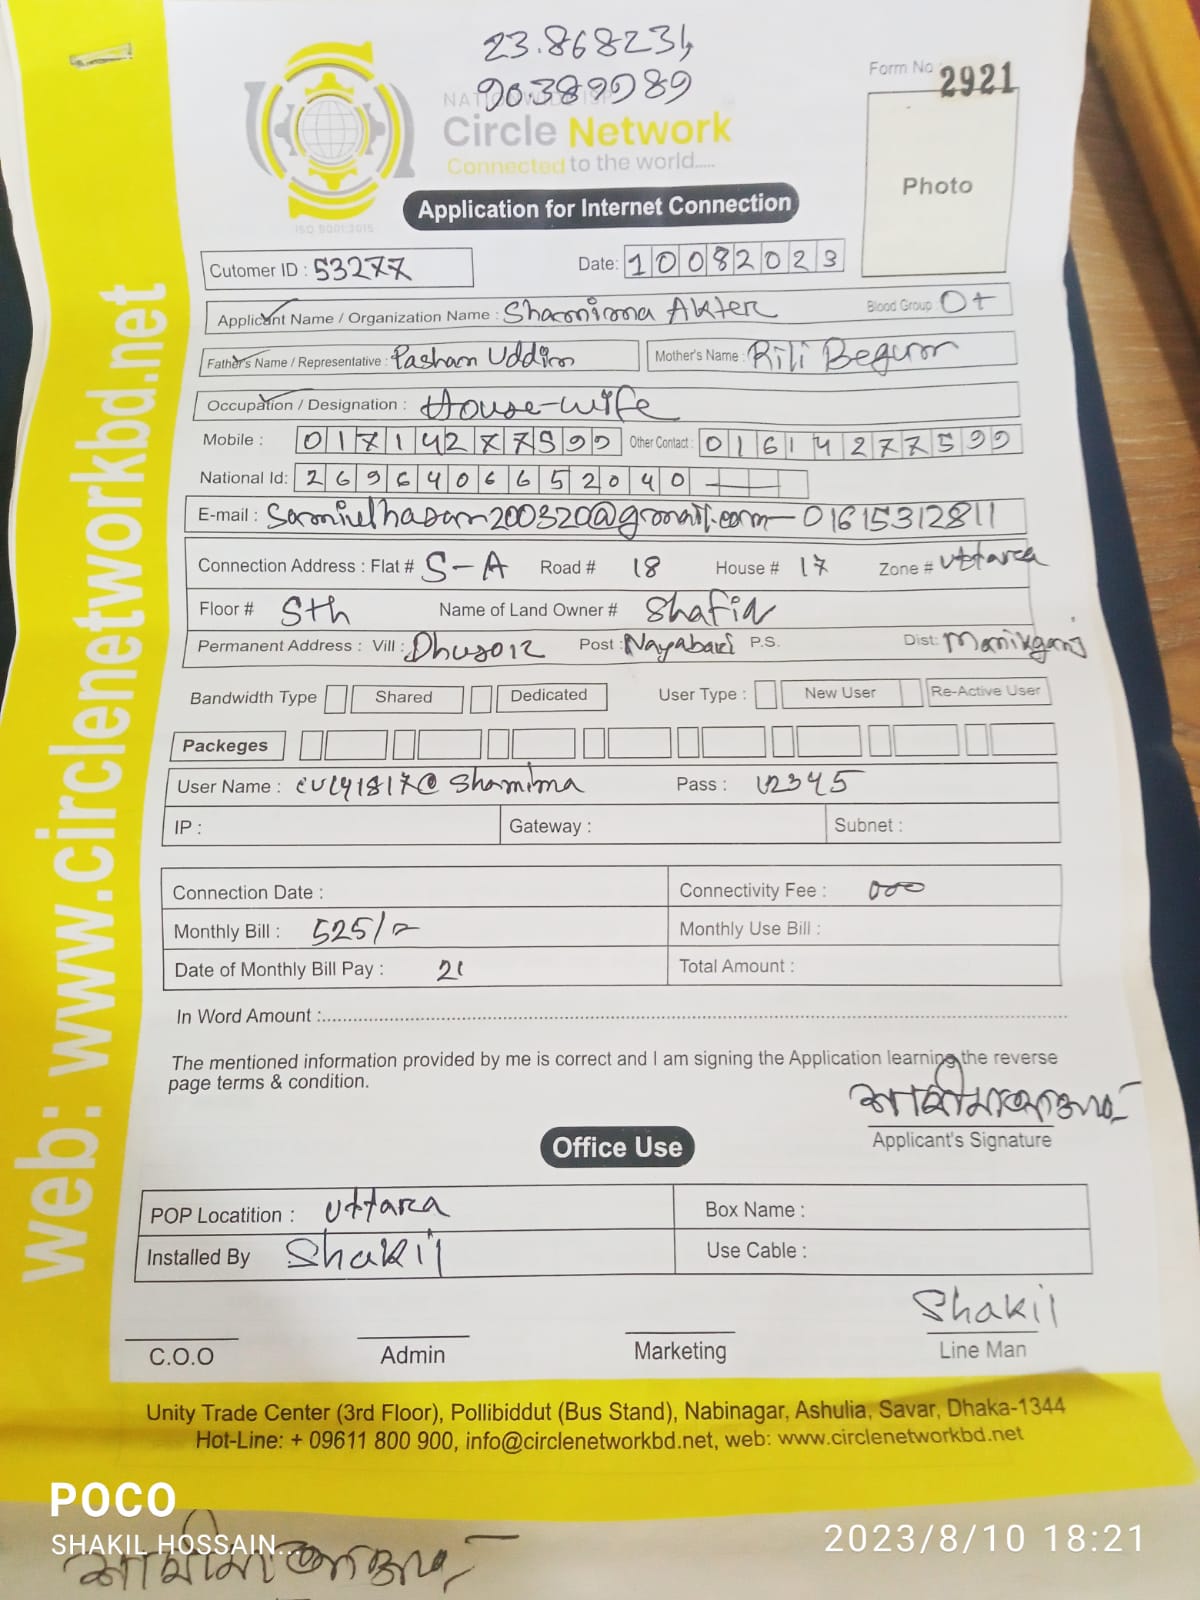 23.868234,
90.389989
Form No 2921
NATIONWIDE ISP
Circle Network
Connected to the world.....
ISO 9001:2015
Photo
Application for Internet Connection
Cutomer ID : 53277 Date: 10082023
Applicant Name / Organization Name : Shamima Akter Blood Group O+
Father's Name / Representative : Pashan Uddin Mother's Name : Rili Begum
Occupation / Designation : House-wife
Mobile : 01714277599 Other Contact : 01614277599
National Id: 2696406652040
E-mail : Samiulhasan200320@gmail.com - 01615312811
Connection Address : Flat # 5-A Road # 18 House # 17 Zone # Uttara
Floor # 5th Name of Land Owner #
Permanent Address : Vill : Post : Nayabari P.S. Dist: Manikganj
Bandwidth Type Shared Dedicated User Type : New User Re-Active User
Packeges
User Name : Pass : 12345
IP : Gateway : Subnet :
Connection Date : Connectivity Fee : 000
Monthly Bill : 525/= Monthly Use Bill :
Date of Monthly Bill Pay : Total Amount :
In Word Amount :
The mentioned information provided by me is correct and I am signing the Application learning the reverse
page terms & condition.
শামীমা আক্তার
Applicant's Signature
Office Use
POP Locatition : Uttara Box Name :
Installed By Shakil Use Cable :
Shakil
C.O.O Admin Marketing Line Man
Unity Trade Center (3rd Floor), Pollibiddut (Bus Stand), Nabinagar, Ashulia, Savar, Dhaka-1344
Hot-Line: + 09611 800 900, info@circlenetworkbd.net, web: www.circlenetworkbd.net
web: www.circlenetworkbd.net
POCO
SHAKIL HOSSAIN... 2023/8/10 18:21
শামীমা আক্তার